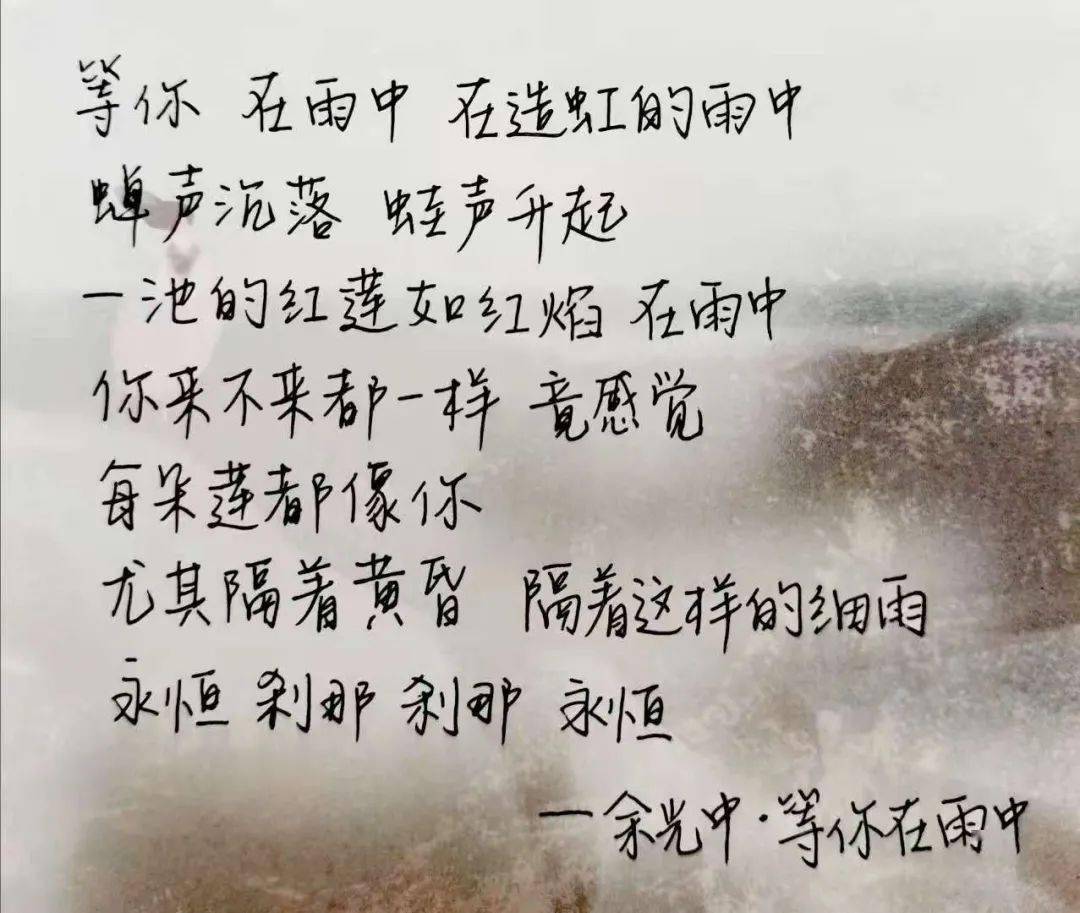 等你 在雨中 在造虹的雨中
蝉声沉落 蛙声升起
一池的红莲如红焰 在雨中
你来不来都一样 竟感觉
每朵莲都像你
尤其隔着黄昏 隔着这样的细雨
永恒 刹那 刹那 永恒
—余光中·等你在雨中